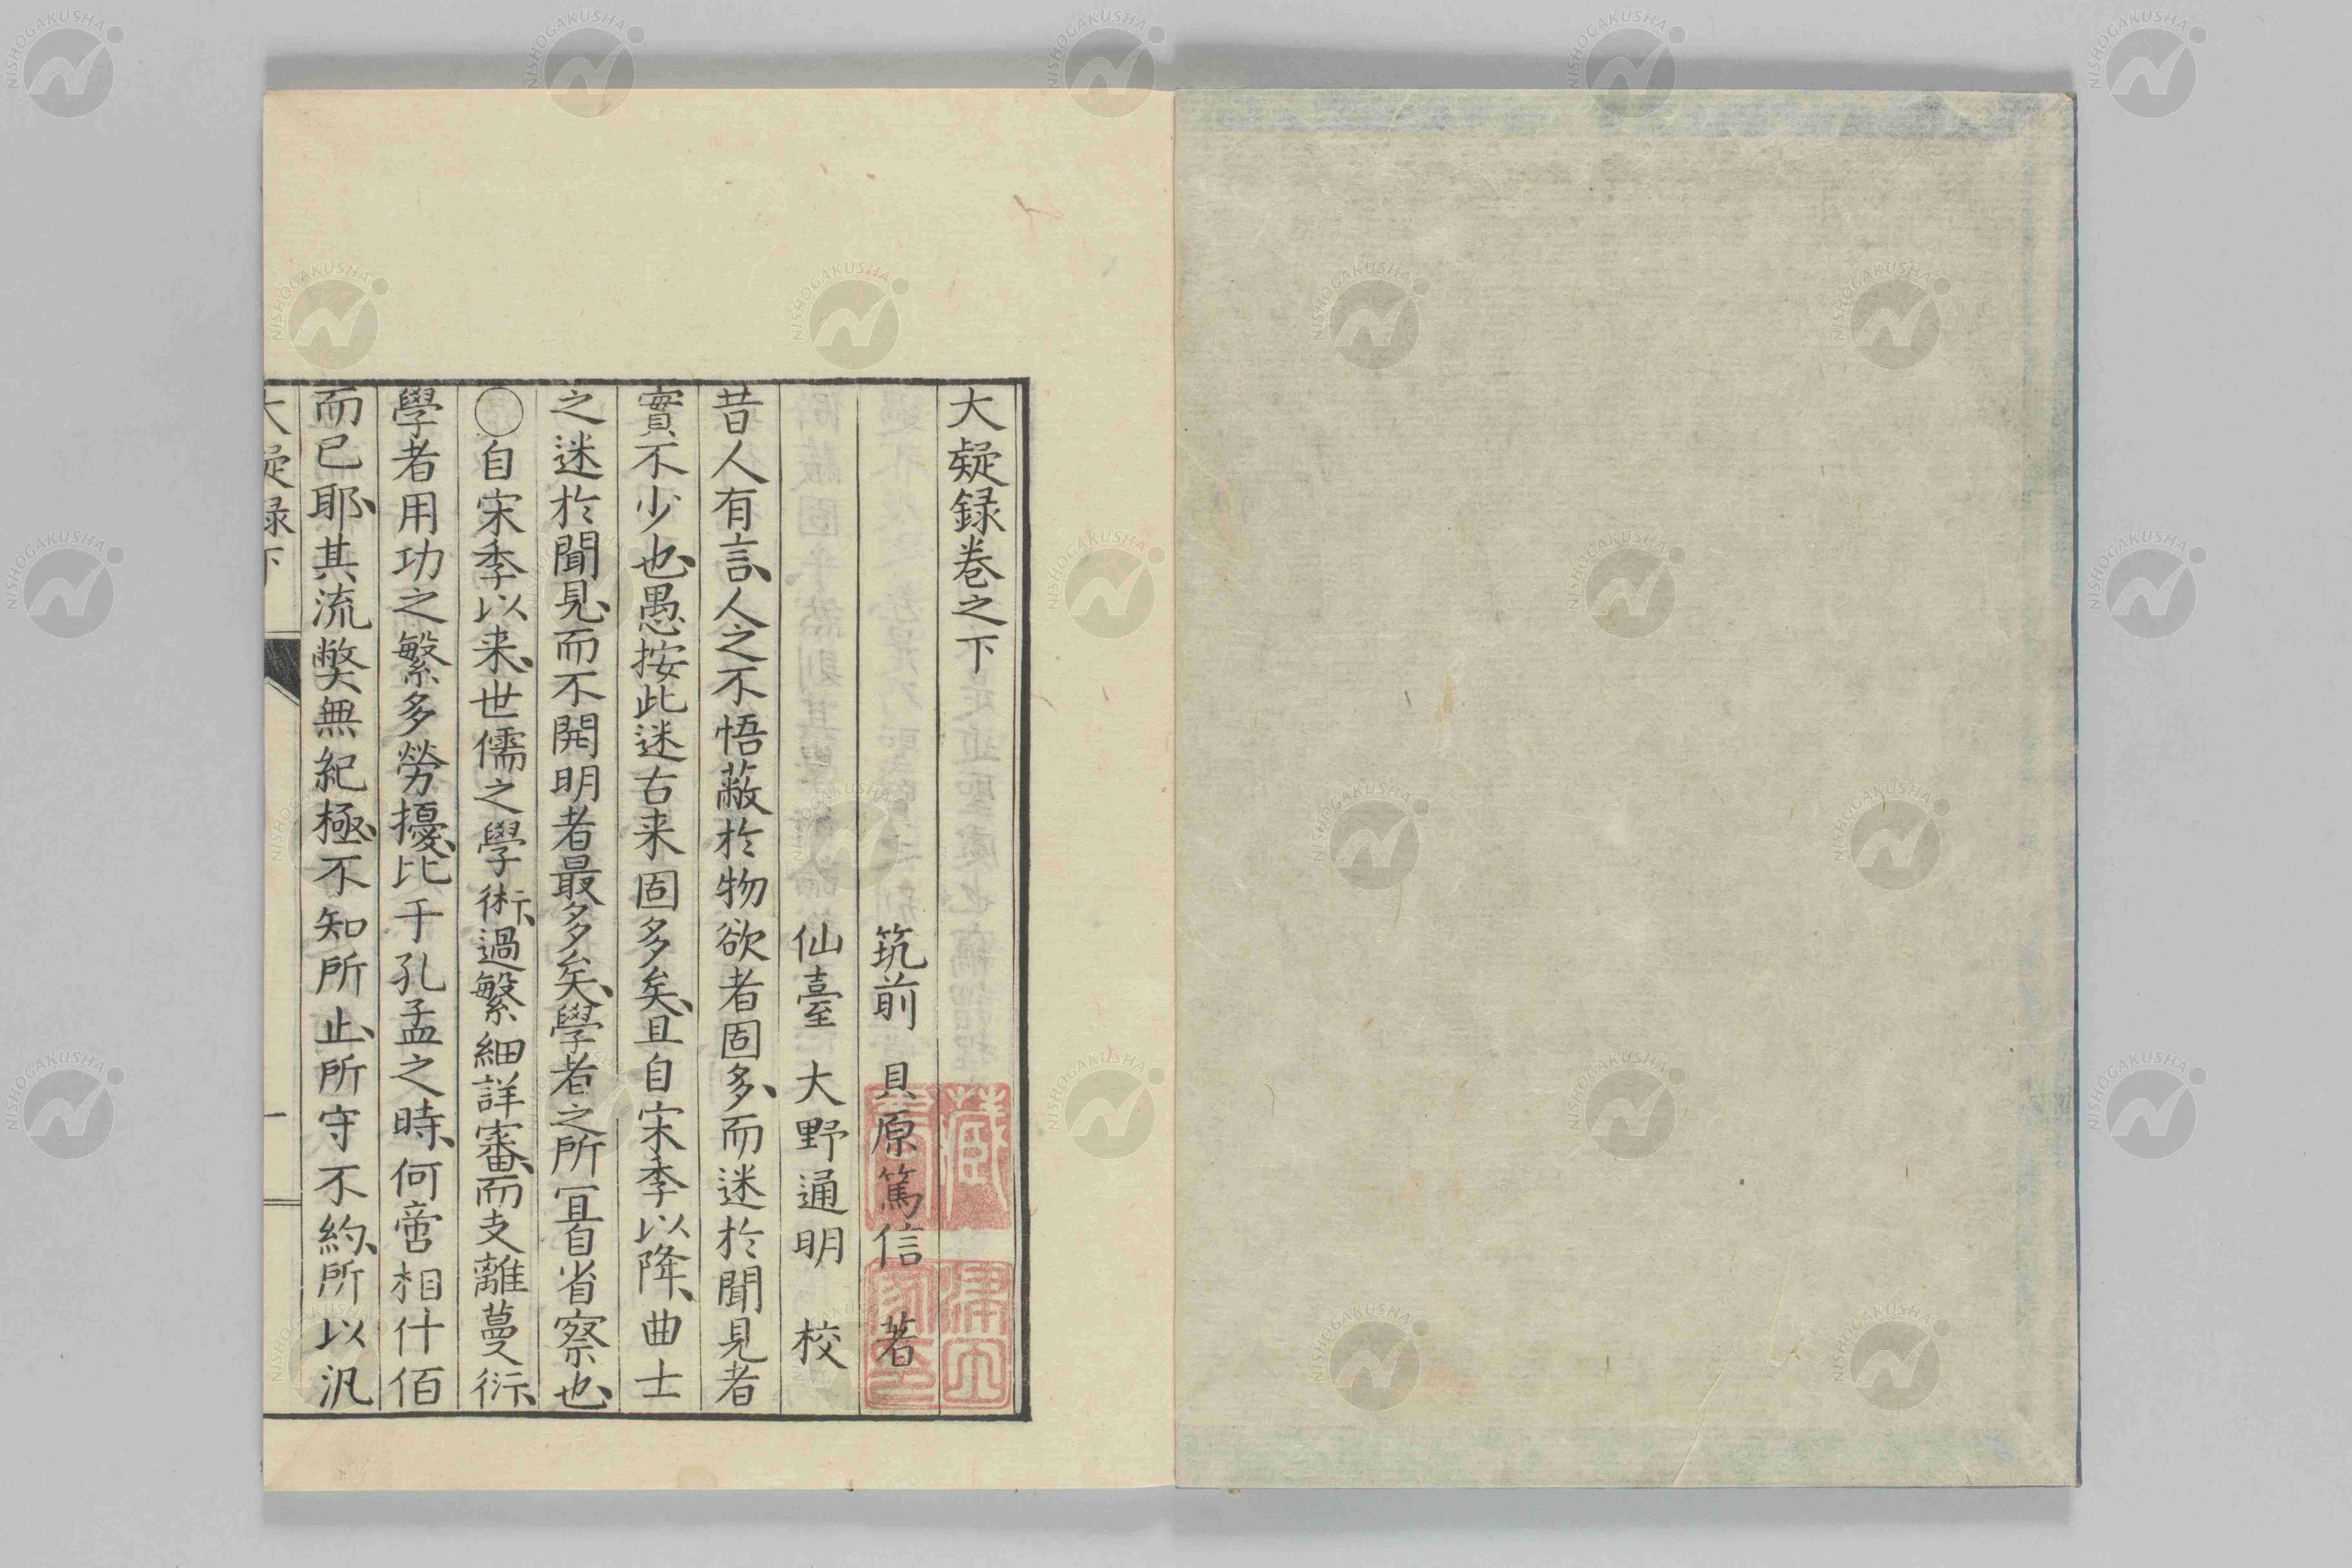 大疑録卷之下
筑前　貝原篤信　著
仙臺　大野通明　校
昔人有言、人之不悟蔽於物欲者固多、而迷於聞見者
實不少也、愚按此迷古来固多矣、且自宋季以降、曲士
之迷於聞見、而不開明者最多矣、學者之所宜省察也、
〇自宋季以来、世儒之學術、過繁細詳審、而支離蔓衍、
學者用功之繁多勞擾、比于孔孟之時、何啻相什佰
而已耶、其流弊無紀極、不知所止、所守不約、所以汎
大疑録下
一
藏書
家印
NISHOGAKUSHA